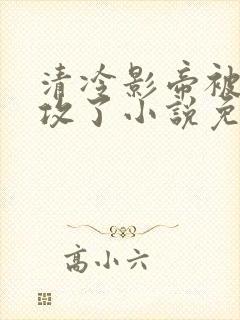 清冷影帝被
攻了小說免
高小六